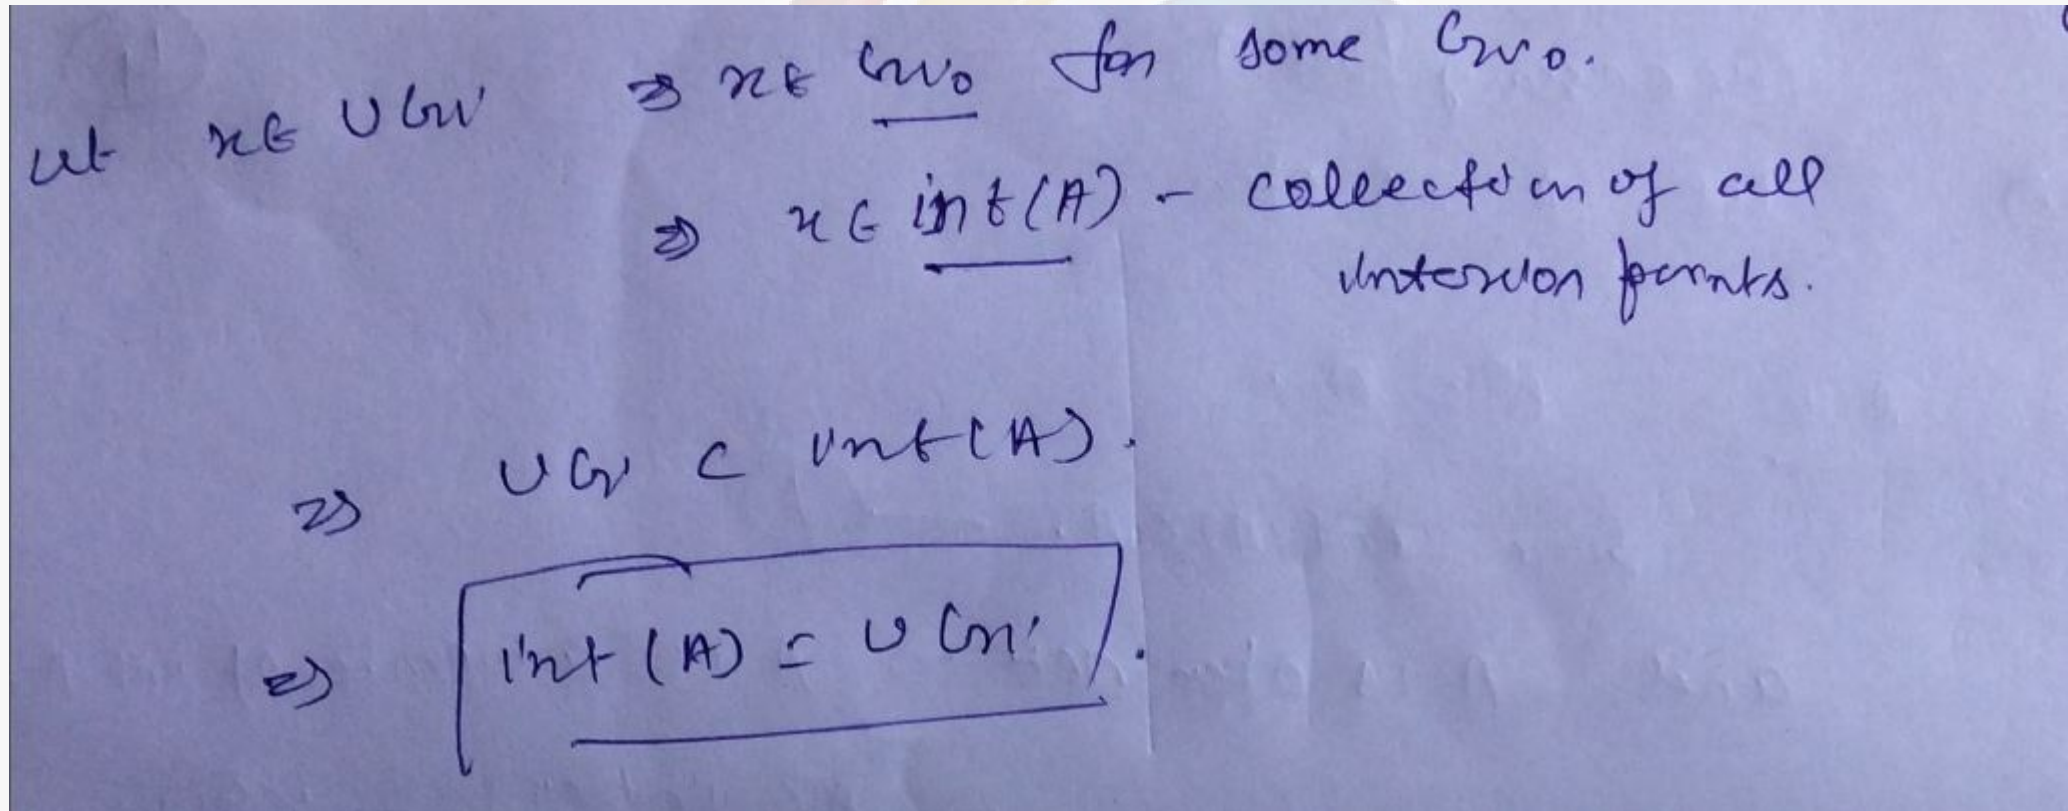 Let x ∈ ∪ Gi ⇒ x ∈ Gi₀ for some Gi₀.
⇒ x ∈ int(A) - collection of all
interior points.
⇒ ∪ Gi ⊂ int(A).
⇒ int(A) = ∪ Gi.